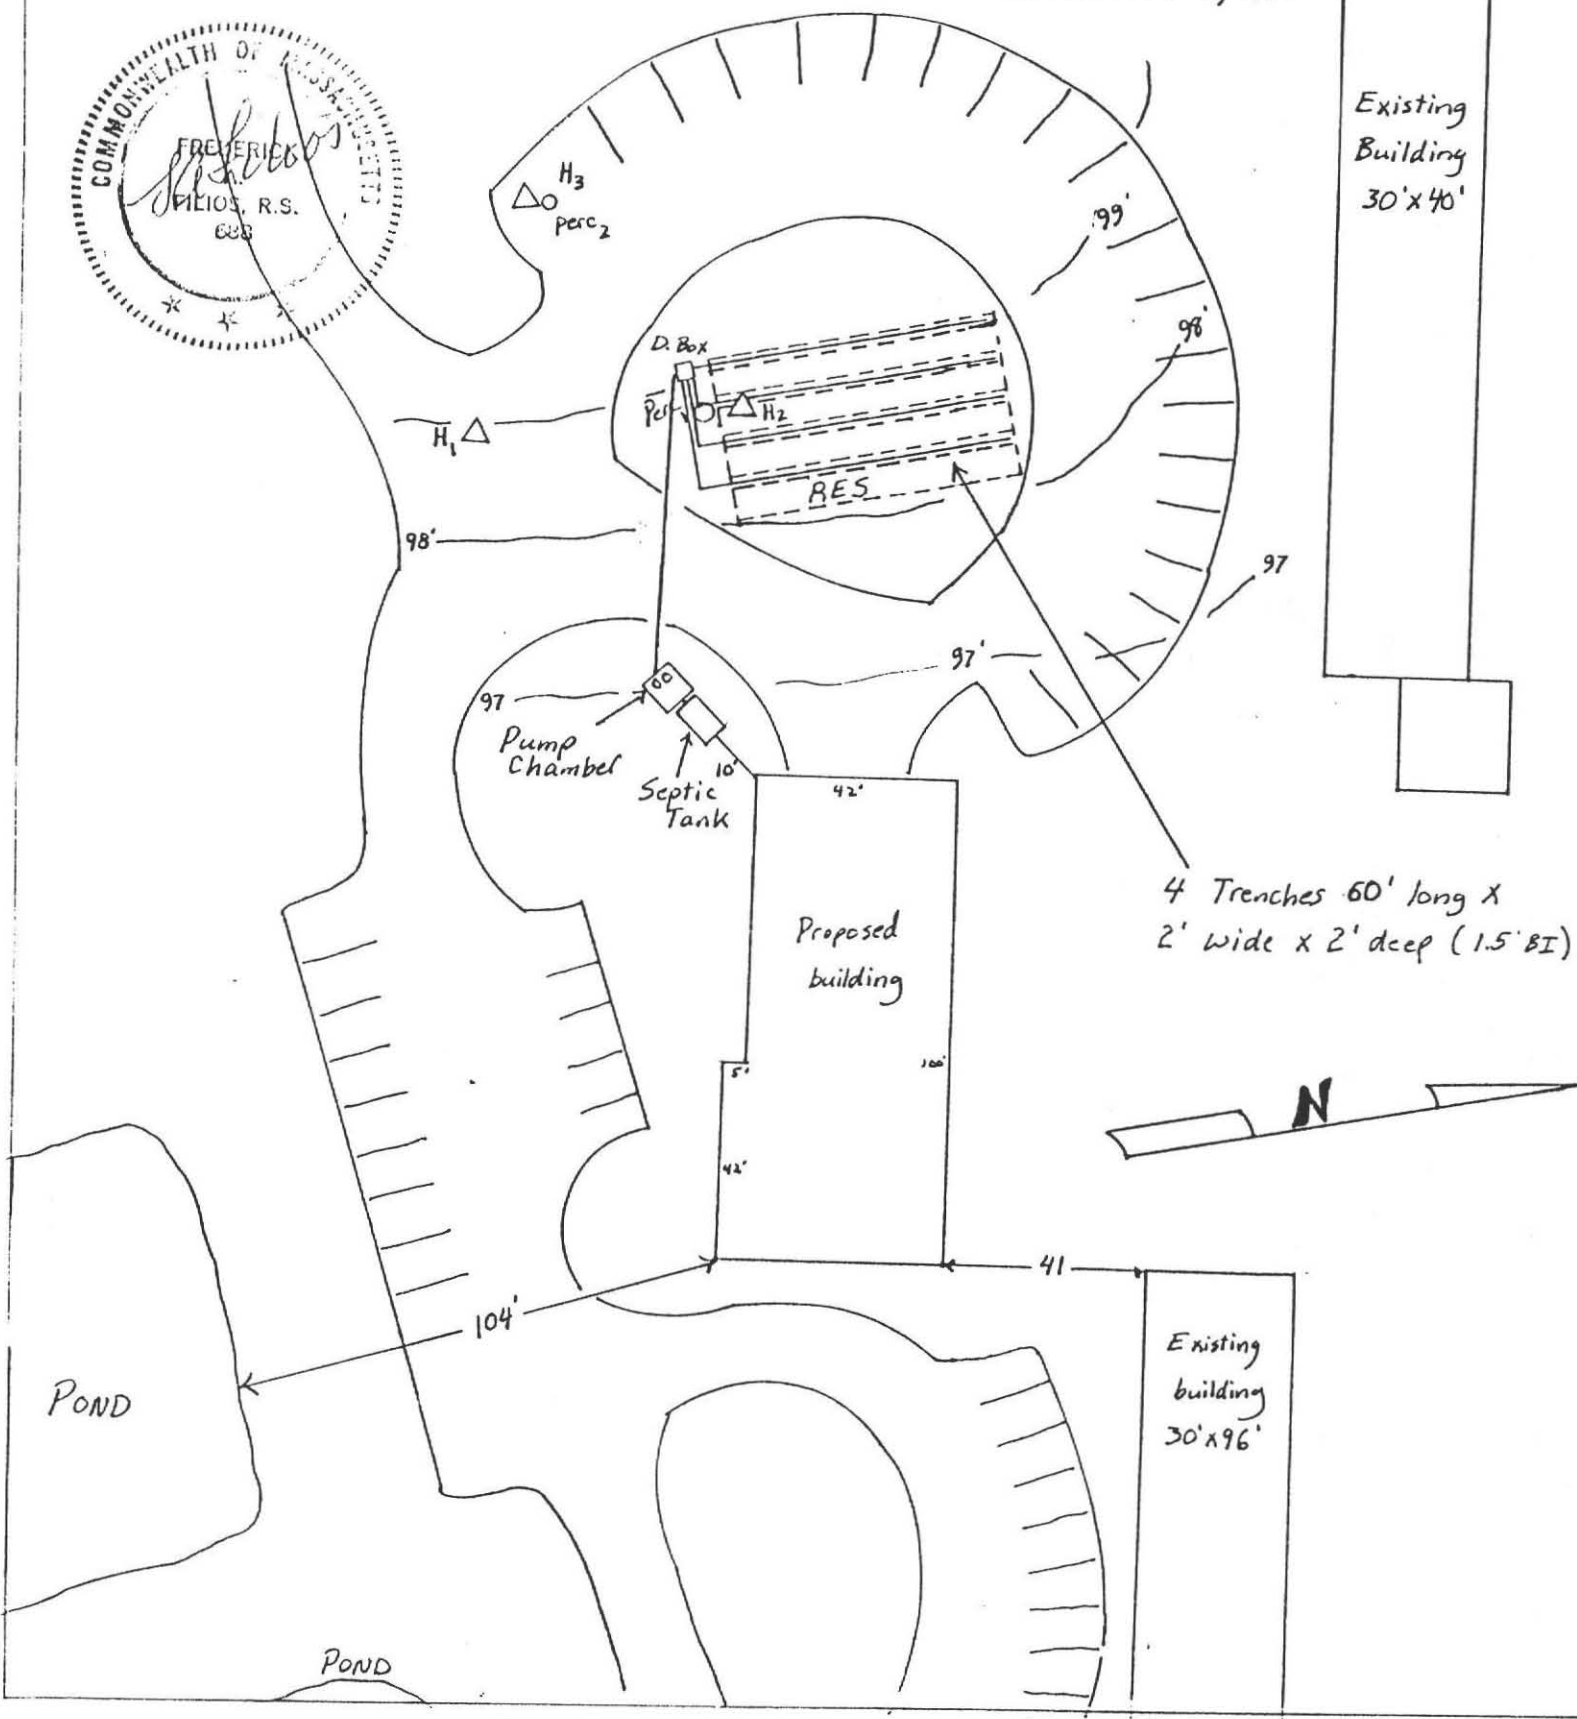 COMMONWEALTH OF MASSACHUSETTS
FREDERICK
FILIOS, R.S.
688
Existing
Building
30'x40'
H3
perc2
99'
98'
D. Box
H2
H1
RES
98'
97
97'
97
Pump
Chamber
10'
Septic
Tank
42'
4 Trenches 60' long x
2' wide x 2' deep (1.5' BI)
Proposed
building
5'
100'
N
42'
41
104'
Existing
building
30'x96'
POND
POND